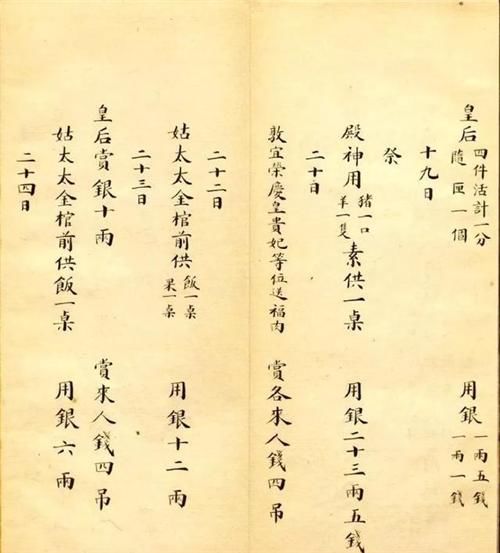 皇后 四件活計一分 隨匣一個 用銀 一兩五錢 一兩一錢
十九日
祭
殿神用 猪一口 羊一隻 素供一桌 用銀二十三兩五錢
二十日
敦宜榮慶皇貴妃等位送福肉 賞各來人錢四吊
二十二日
姑太太金棺前供 飯一桌 果一桌 用銀十二兩
二十三日
皇后賞銀十兩 賞來人錢四吊
姑太太金棺前供飯一桌 用銀六兩
二十四日